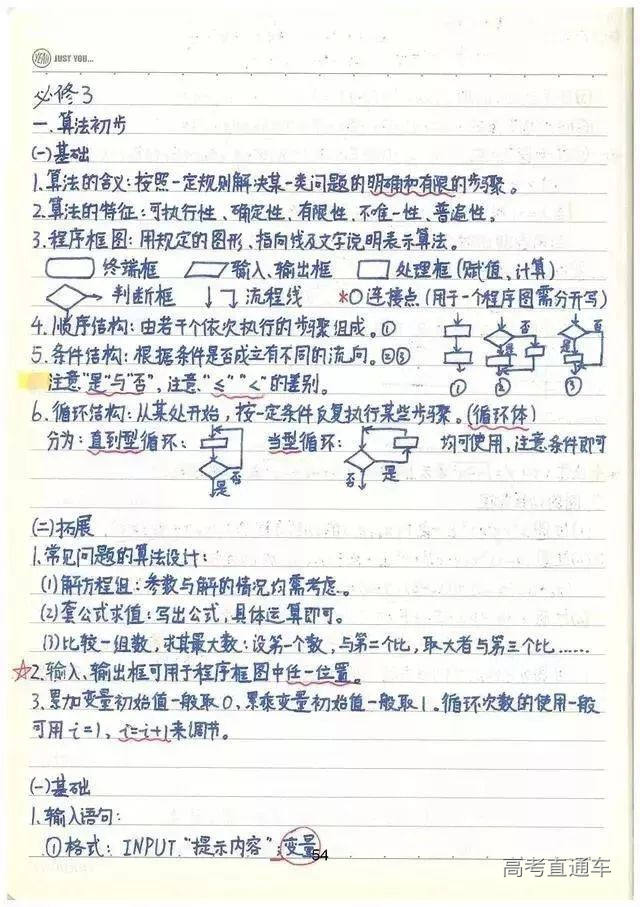 YEAH JUST YOU...
必修3
一.算法初步
(一)基础
1.算法的含义:按照一定规则解决某一类问题的明确和有限的步骤。
2.算法的特征:可执行性、确定性、有限性、不唯一性、普遍性。
3.程序框图:用规定的图形、指向线及文字说明表示算法。
终端框 输入、输出框 处理框(赋值、计算)
判断框 流程线 *○连接点(用于一个程序图需分开写)
4.顺序结构:由若干个依次执行的步骤组成。①
是 否 是 否
5.条件结构:根据条件是否成立有不同的流向。②③
注意"是"与"否",注意"≤""<"的差别。 ① ② ③
6.循环结构:从某处开始,按一定条件反复执行某些步骤。(循环体)
分为:直到型循环: 当型循环: 均可使用,注意条件即可
否 是 否 是
(二)拓展
1.常见问题的算法设计:
(1)解方程组:参数与解的情况均需考虑。
(2)套公式求值:写出公式,具体运算即可。
(3)比较一组数,求其最大数:设第一个数,与第二个比,取大者与第三个比......
☆2.输入、输出框可用于程序框图中任一位置。
3.累加变量初始值一般取0,累乘变量初始值一般取1。循环次数的使用一般
可用i=1,i=i+1来调节。
(一)基础
1.输入语句:
①格式:INPUT "提示内容";变量
54
高考直通车